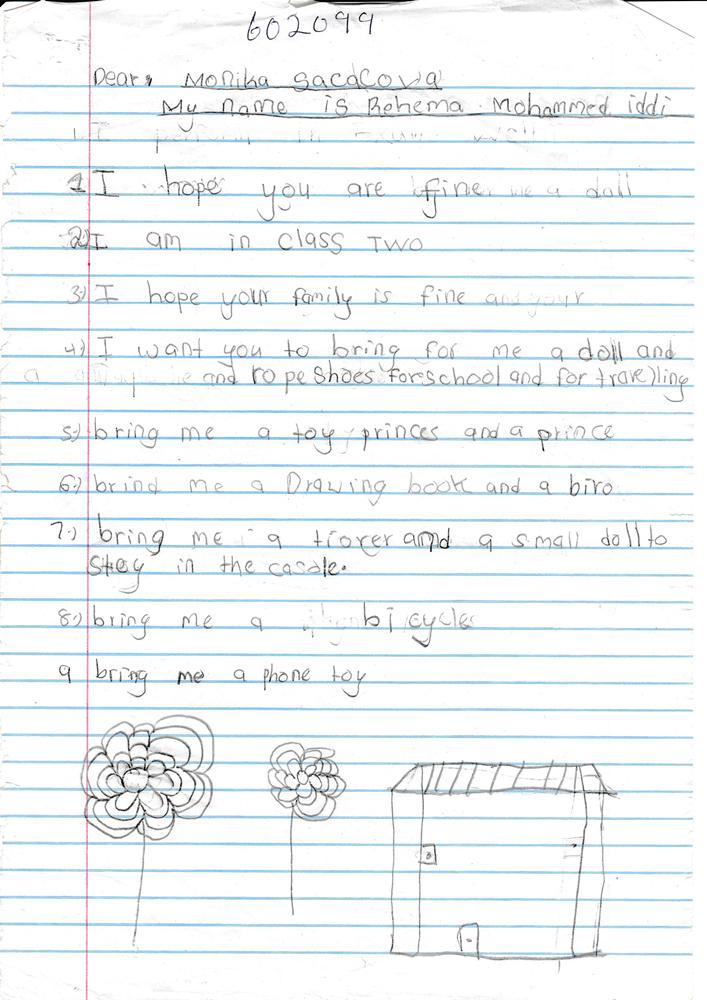 602099
Dear, Monika Sacacova
My name is Rehema Mohammed iddi
1. I perform in exam well
1 I hope you are fine me a doll
2) I am in class TWO
3) I hope your family is fine and your
4) I want you to bring for me a doll and
a and rope shoes for school and for travelling
5) bring me a toy princes and a prince
6) brind me a Drawing book and a biro
7) bring me a and a small doll to
Stey in the casdle.
8) bring me a bicycles
9 bring me a phone toy